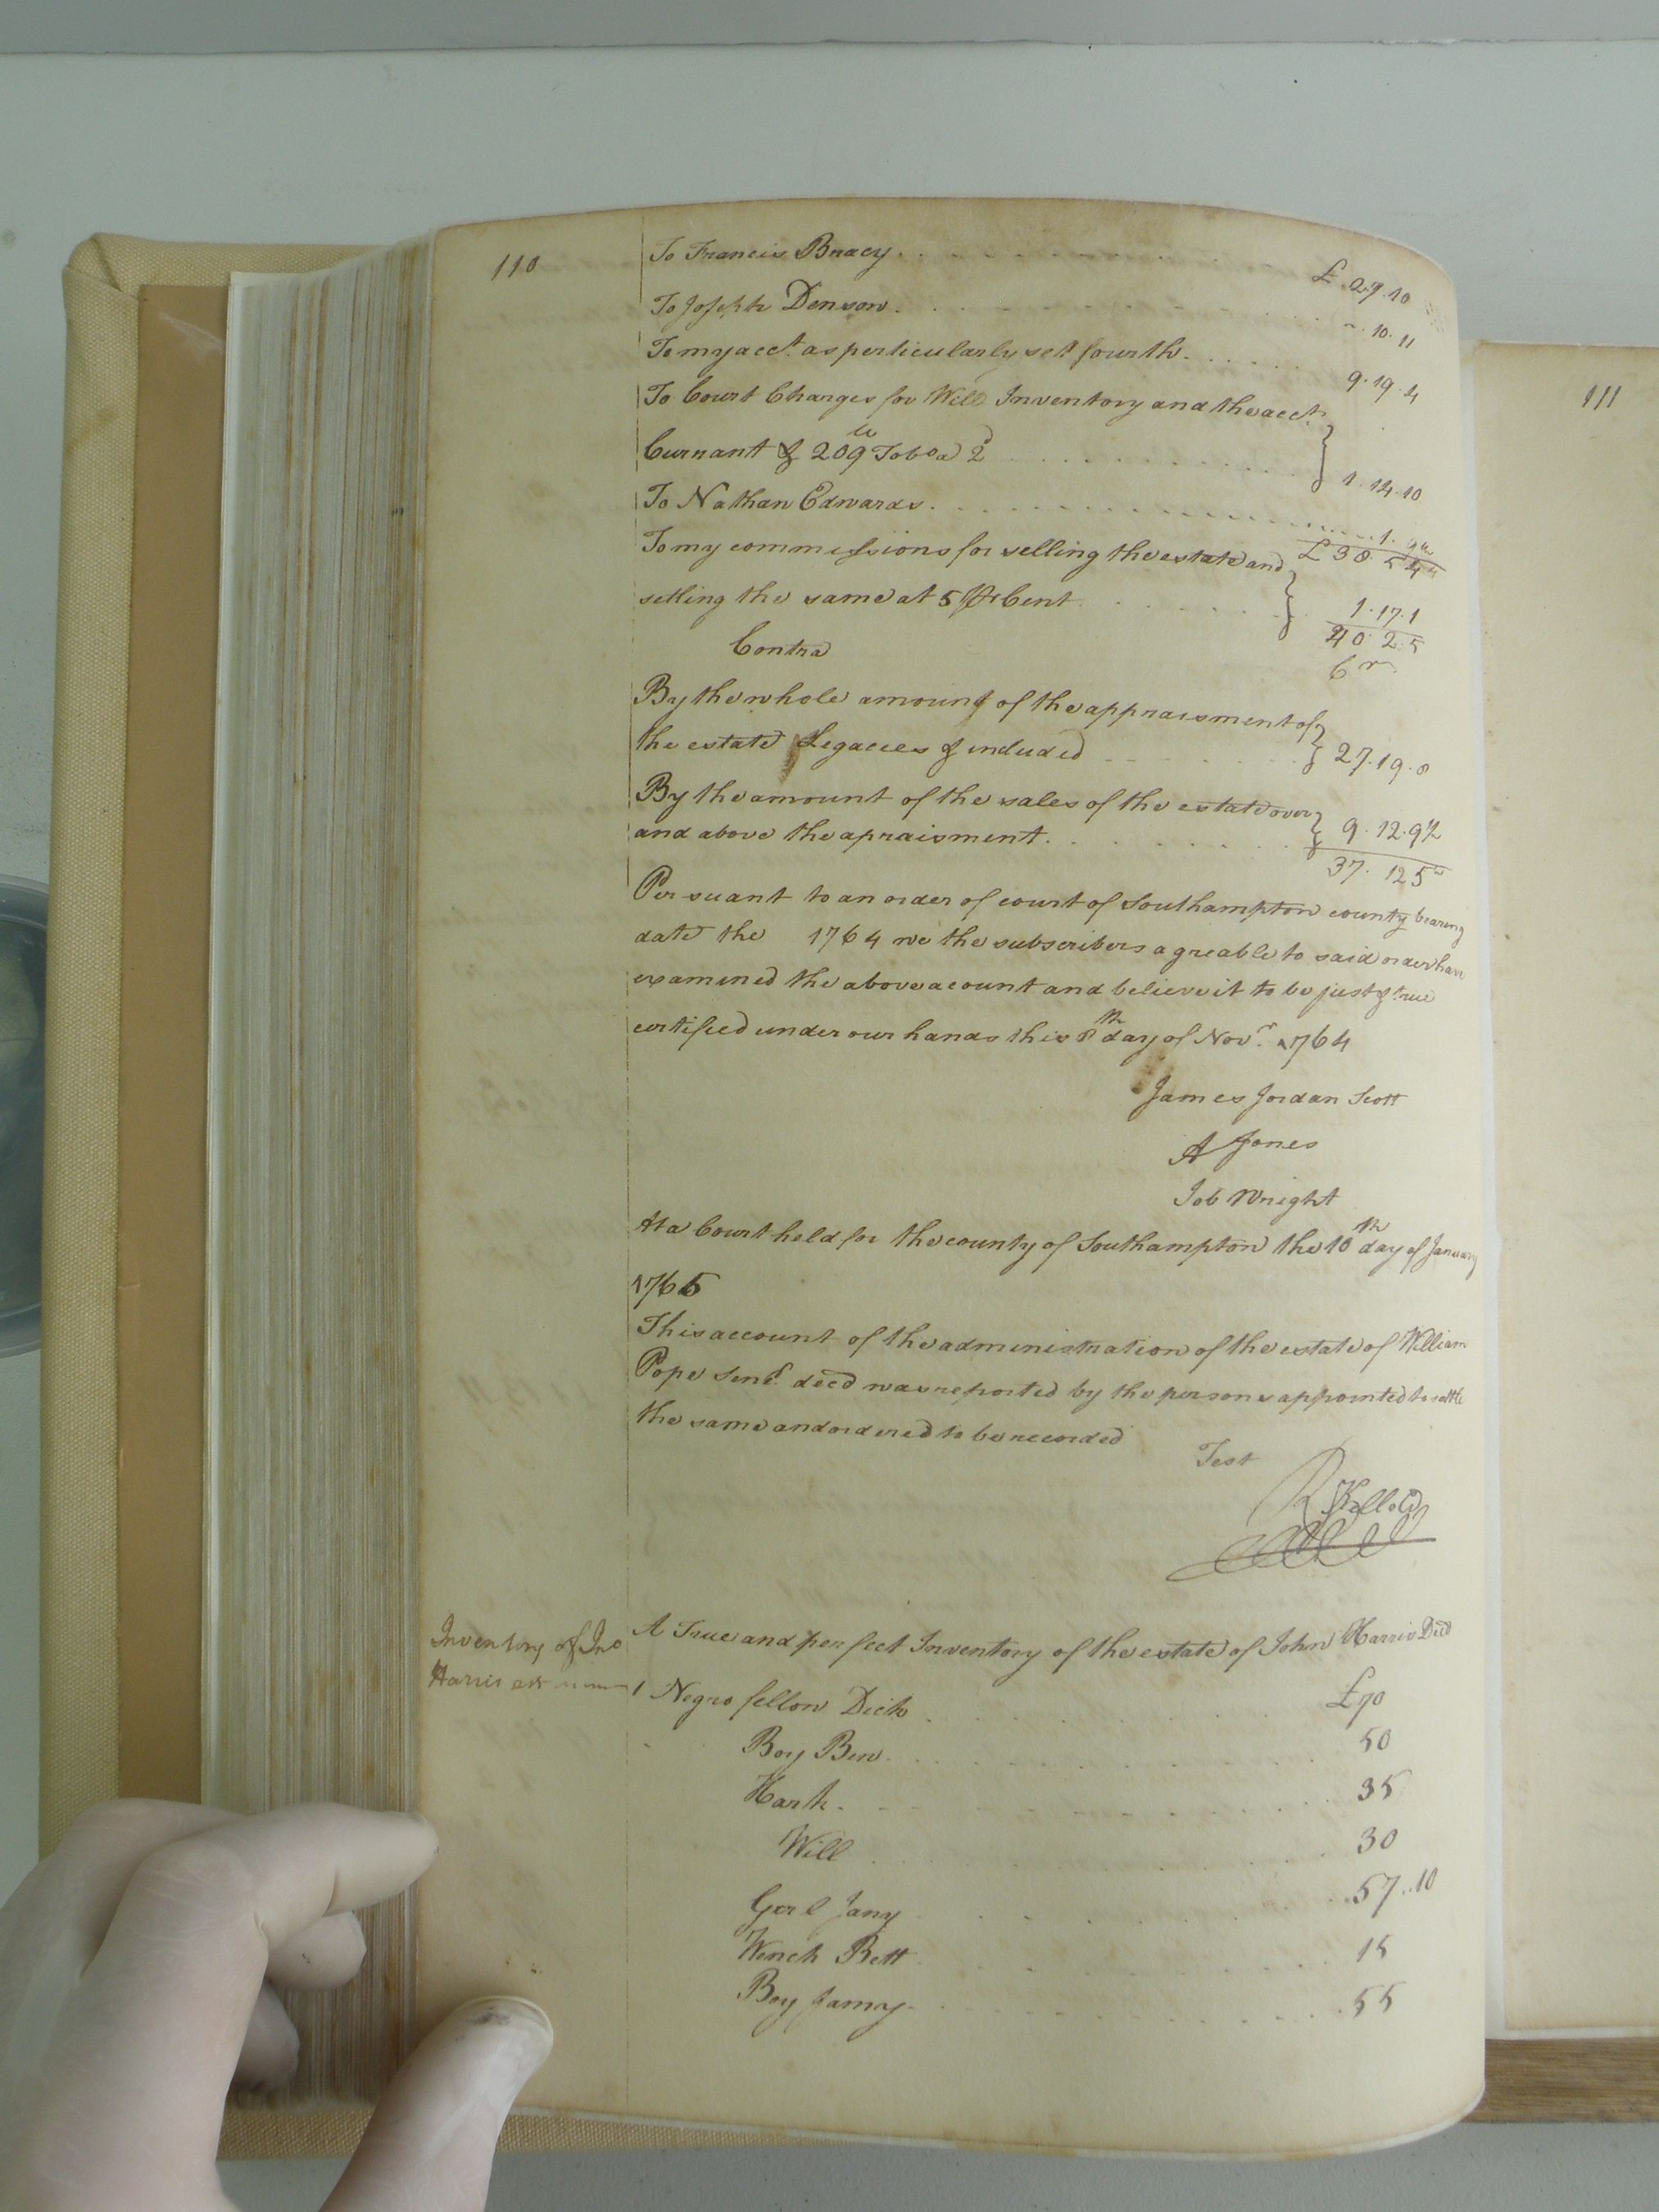 110
To Francis Bracy . . . £ .29.10
To Joseph Denson . . . 10.11
To my acct. as perticularly set fourth . . . 9.19.4
To Court Charges for Will Inventory and the acct.
Currant & 209 lb Tobo a 2d . . . 1.14.10
To Nathan Edwards . . . 1.
£ 38. 5 4
To my commissions for selling the estate and
setling the same at 5 Pr Cent . . . 1.17.1
40 2.5
Contra Cr
By the whole amount of the appraisment of
the estate Legacees & included . . . 27.19.8
By the amount of the sales of the estate over
and above the apraisment . . . 9.12.9½
37. 12 5
Persuant to an order of court of Southampton county bearing
date the 1764 we the subscribers agreable to said order have
examined the above acount and believe it to be just & true
certified under our hands this 8th day of Novr. 1764
James Jordan Scott
A Jones
Job Wright
At a Court held for the county of Southampton the 10th day of January
1765
This account of the administration of the estate of William
Pope Senr. decd was reported by the persons appointed to settle
the same and ordered to be recorded
Test
R Kello
Inventory of Jno
Harris est
A True and perfect Inventory of the estate of John Harris Decd
1 Negro fellow Dick . . . £70
Boy Ben . . . 50
Hark . . . 35
Will . . . 30
Gerl Jany . . . 57..10
Wench Bett . . . 15
Boy Jamy . . . 55
111